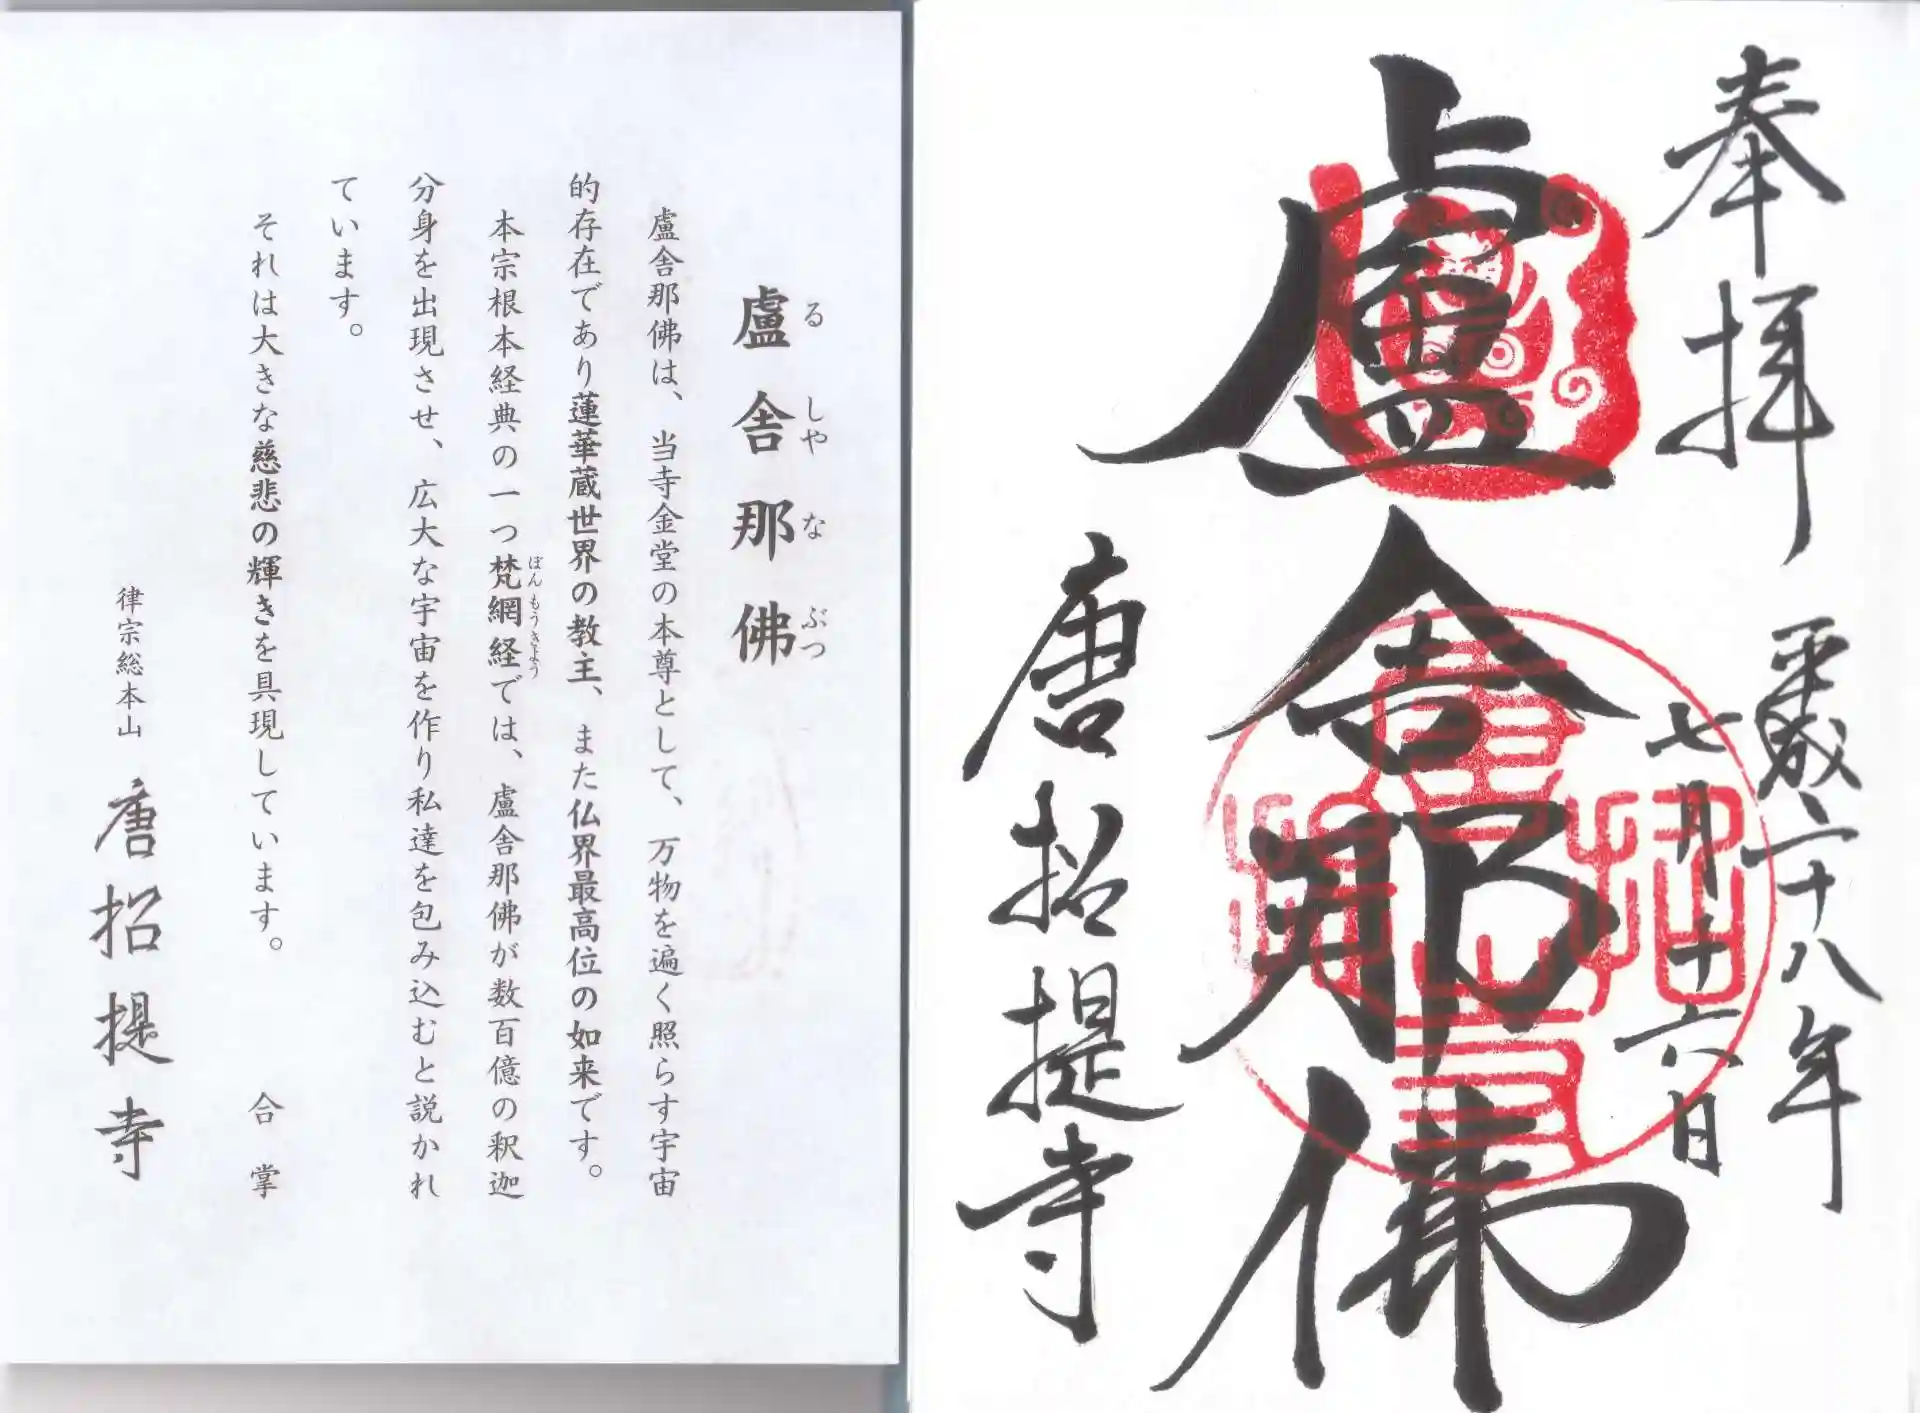 奉拝
平成二十八年
七月十六日
盧舎那佛
唐招提寺
盧舎那佛
るしやなぶつ
盧舎那佛は、当寺金堂の本尊として、万物を遍く照らす宇宙
的存在であり蓮華蔵世界の教主、また仏界最高位の如来です。
本宗根本経典の一つ梵網経では、盧舎那佛が数百億の釈迦
ぼんもうきよう
分身を出現させ、広大な宇宙を作り私達を包み込むと説かれ
ています。
それは大きな慈悲の輝きを具現しています。
合掌
律宗総本山 唐招提寺